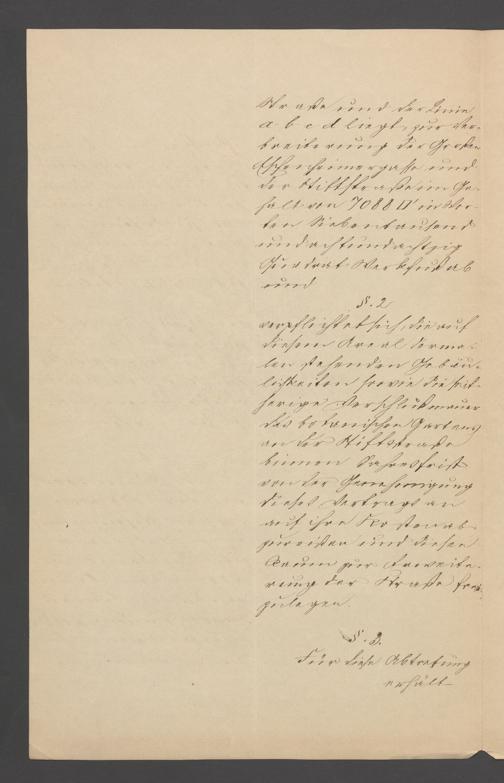 Straße und der Linie
a b c d liegt, zur Ver-
breiterung der Großen
Eschenheimergasse und
der Stiftstraße im Ge-
halt von 7088 □' in Wor-
ten Siebentausend
und achtundachtzig
Quadrat Werkfuß ab
und
§. 2
verpflichtet sich, die auf
diesem Areal derma-
len stehenden Gebäu-
lichkeiten sowie die seit-
herige Verschlußmauer
des botanischen Gartens
an der Stiftstraße
binnen Jahresfrist
von der Genehmigung
dieses Vertrags an
auf ihre Kosten ab-
zureißen und diesen
Raum zur Erweite-
rung der Straße frei
zulegen.
§. 3.
Für diese Abtretung
erhält